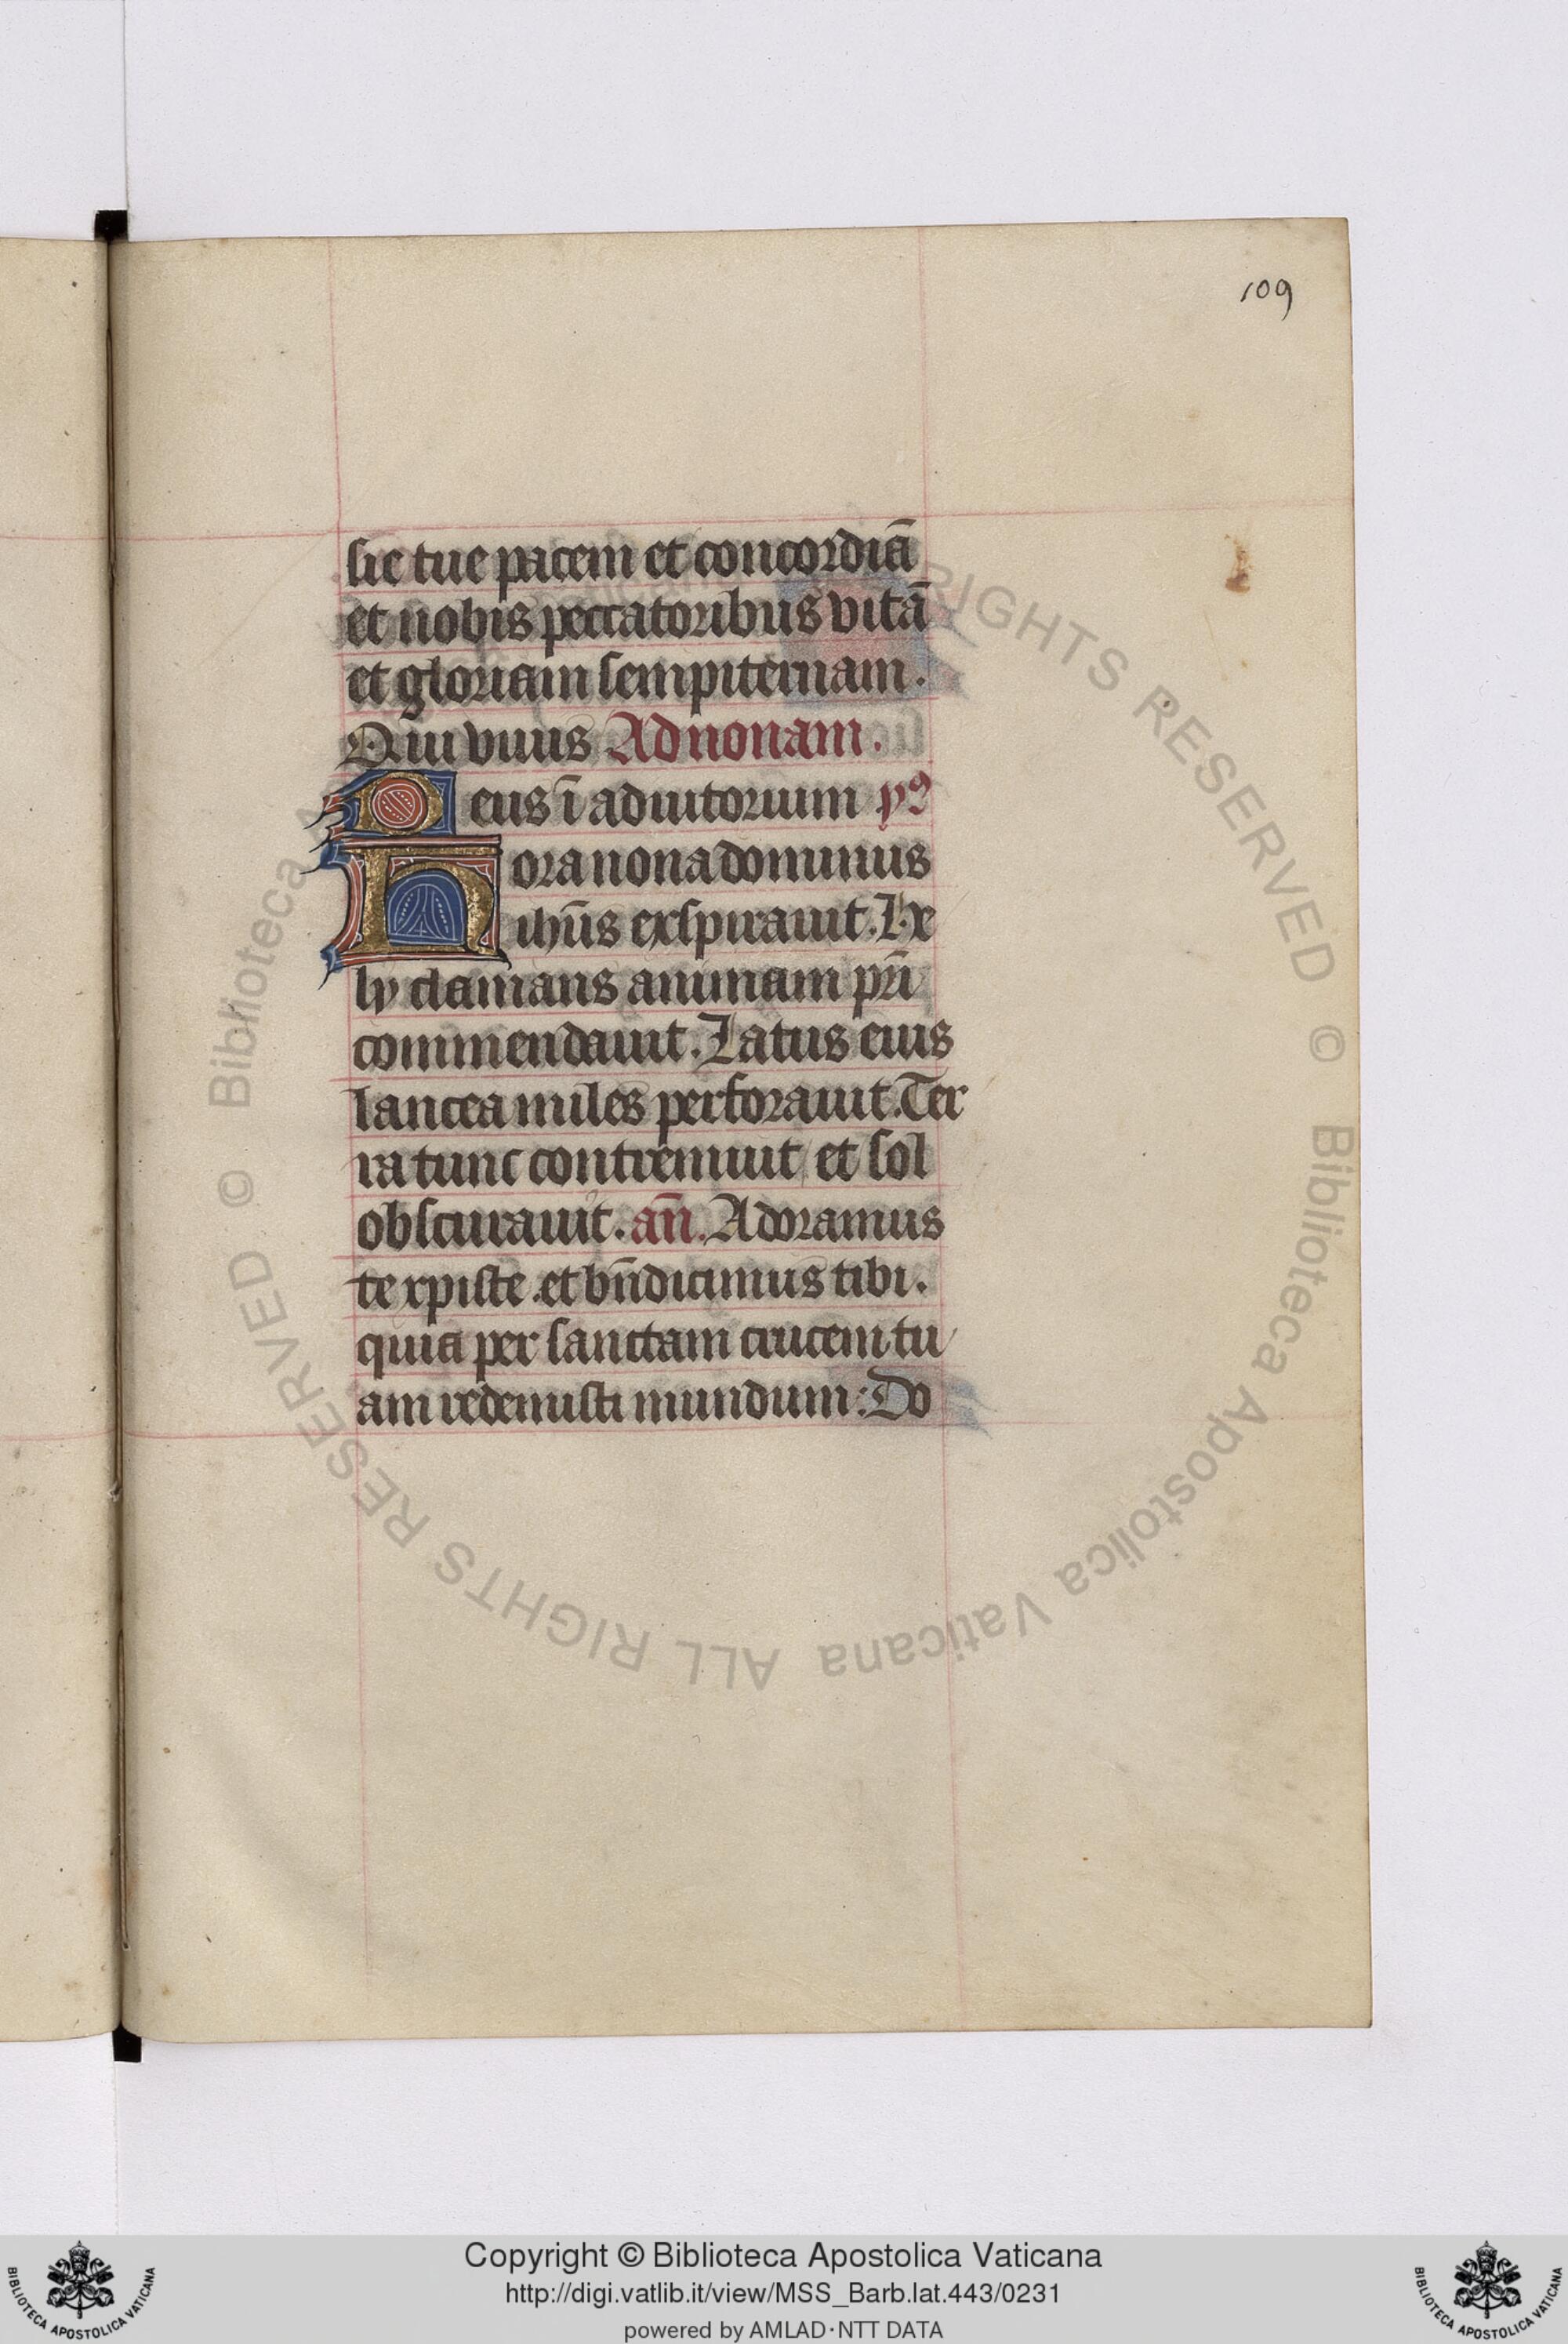 109
sie tue pacem et concordiā
et nobis peccatoribus vitā
et gloriam sempiternam.
Qui viuis Ad nonam.
Deus ī adiutorium ymꝰ
Hora nona dominus
ihūs exspirauit. He
ly clamans animam pr̄i
commendauit. Latus eius
lancea miles perforauit. Ter
ra tunc contremuit et sol
obscurauit. añ. Adoramus
te xpiste et bn̄dicimus tibi.
quia per sanctam crucem tu
am redemisti mundum: Do
© Biblioteca Apostolica Vaticana ALL RIGHTS RESERVED
Copyright © Biblioteca Apostolica Vaticana
http://digi.vatlib.it/view/MSS_Barb.lat.443/0231
powered by AMLAD·NTT DATA
BIBLIOTECA APOSTOLICA VATICANA
BIBLIOTECA APOSTOLICA VATICANA